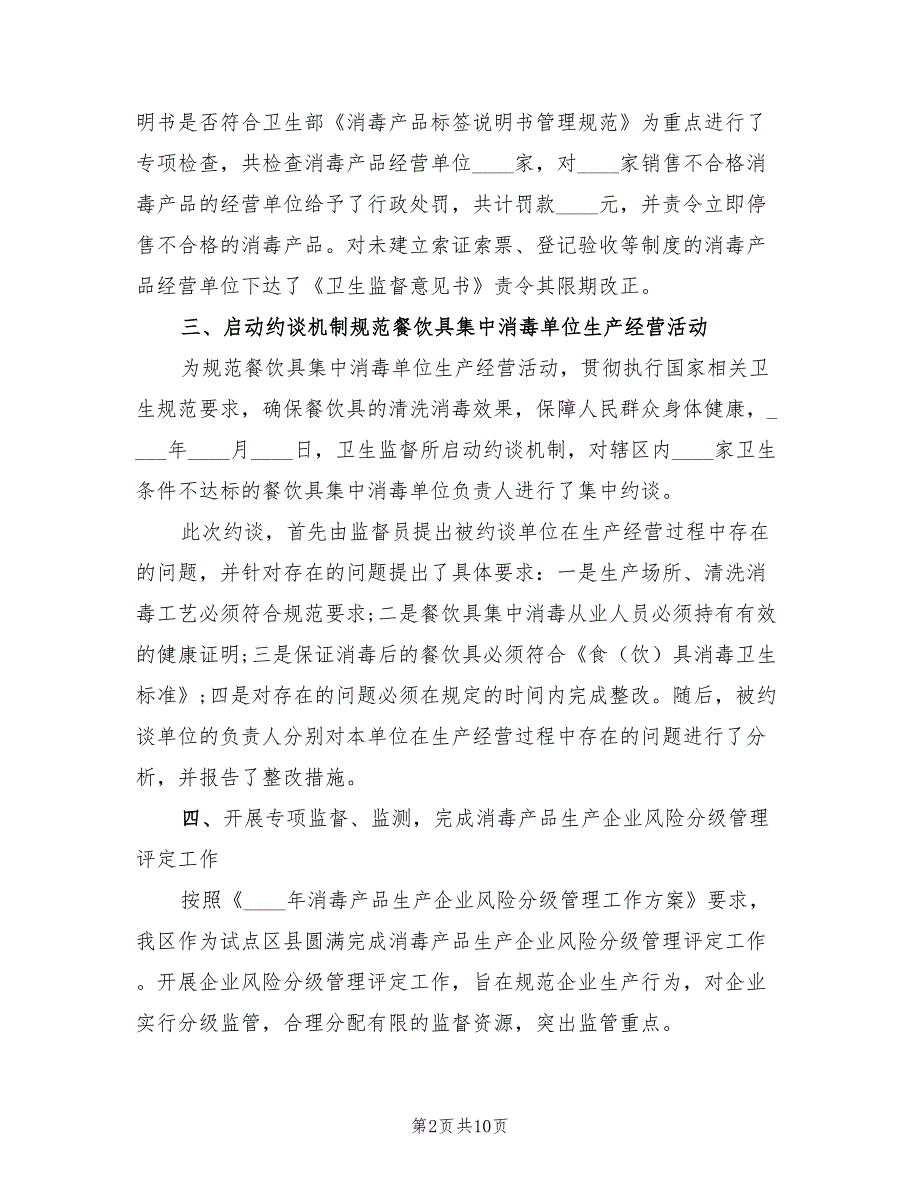 明书是否符合卫生部《消毒产品标签说明书管理规范》为重点进行了
专项检查，共检查消毒产品经营单位____家，对____家销售不合格消
毒产品的经营单位给予了行政处罚，共计罚款____元，并责令立即停
售不合格的消毒产品。对未建立索证索票、登记验收等制度的消毒产
品经营单位下达了《卫生监督意见书》责令其限期改正。
三、启动约谈机制规范餐饮具集中消毒单位生产经营活动
为规范餐饮具集中消毒单位生产经营活动，贯彻执行国家相关卫
生规范要求，确保餐饮具的清洗消毒效果，保障人民群众身体健康，_
___年____月____日，卫生监督所启动约谈机制，对辖区内____家卫生
条件不达标的餐饮具集中消毒单位负责人进行了集中约谈。
此次约谈，首先由监督员提出被约谈单位在生产经营过程中存在
的问题，并针对存在的问题提出了具体要求：一是生产场所、清洗消
毒工艺必须符合规范要求;二是餐饮具集中消毒从业人员必须持有有效
的健康证明;三是保证消毒后的餐饮具必须符合《食（饮）具消毒卫生
标准》;四是对存在的问题必须在规定的时间内完成整改。随后，被约
谈单位的负责人分别对本单位在生产经营过程中存在的问题进行了分
析，并报告了整改措施。
四、开展专项监督、监测，完成消毒产品生产企业风险分级管理
评定工作
按照《____年消毒产品生产企业风险分级管理工作方案》要求，
我区作为试点区县圆满完成消毒产品生产企业风险分级管理评定工作
。开展企业风险分级管理评定工作，旨在规范企业生产行为，对企业
实行分级监管，合理分配有限的监督资源，突出监管重点。
第2页共10页